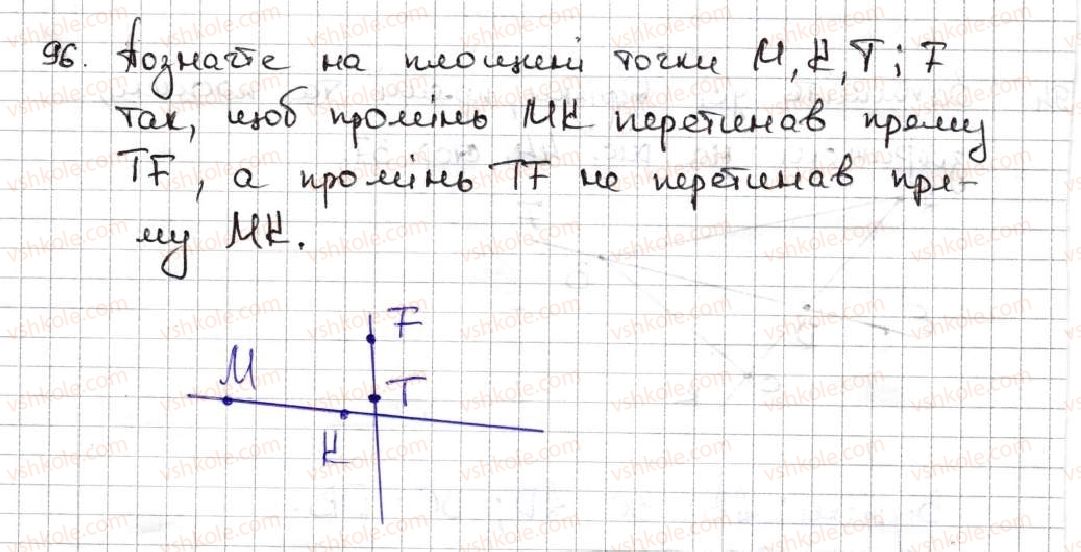 96. Позначте на площині точки М, К, Т і F
так, щоб промінь МК перетинав пряму
TF, а промінь TF не перетинав пря-
му МК.
F
М
Т
К
vshkole.com